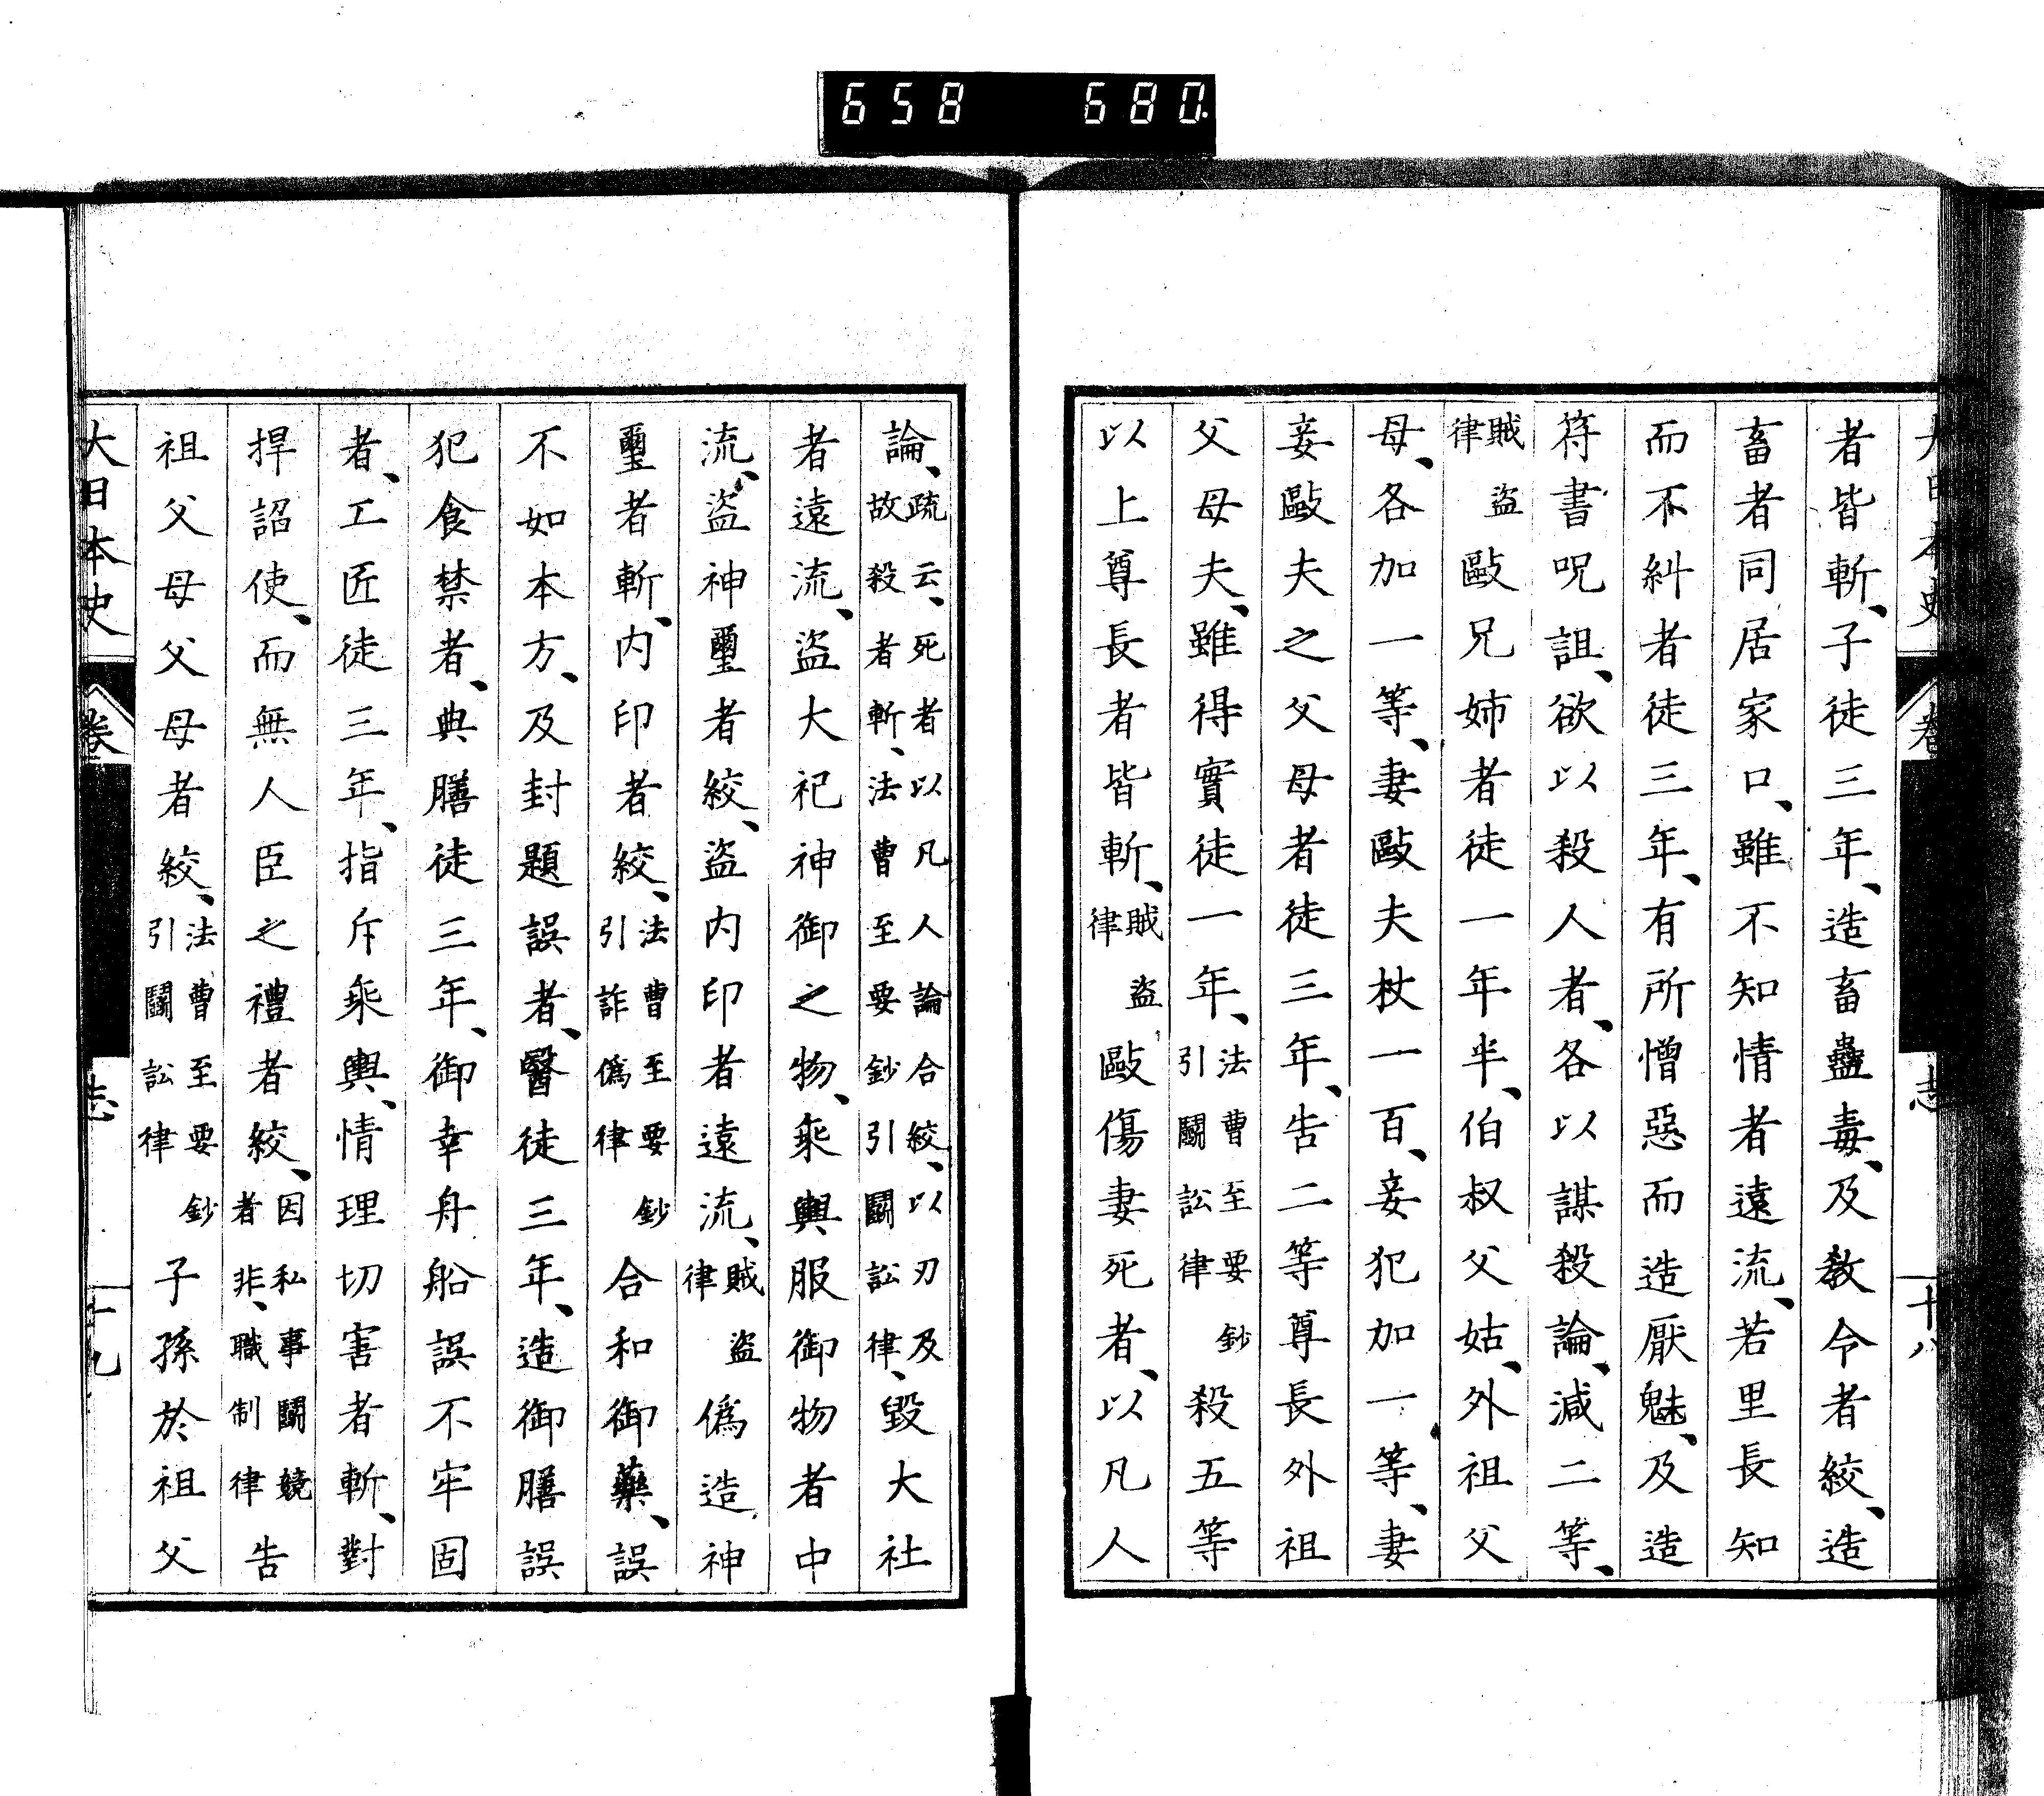 658 680
大日本史 卷 志 十八
者皆斬、子徒三年、造畜蠱毒、及敎令者絞、造
畜者同居家口、雖不知情者遠流、若里長知
而不糾者徒三年、有所憎惡而造厭魅、及造
符書呪詛、欲以殺人者、各以謀殺論、減二等、
賊盜律毆兄姉者徒一年半、伯叔父姑、外祖父
母、各加一等、妻毆夫杖一百、妾犯加一等、妻
妾毆夫之父母者徒三年、告二等尊長外祖
父母夫、雖得實徒一年、法曹至要鈔引鬬訟律殺五等
以上尊長者皆斬、賊盜律毆傷妻死者、以凡人
論、疏云、死者以凡人論合絞、以刃及故殺者斬、法曹至要鈔引鬬訟律、毀大社
者遠流、盜大祀神御之物、乘輿服御物者中
流、盜神璽者絞、盜内印者遠流、賊盜律僞造神
璽者斬、内印者絞、法曹至要鈔引詐僞律合和御藥、誤
不如本方、及封題誤者、醫徒三年、造御膳誤
犯食禁者、典膳徒三年、御幸舟船誤不牢固
者、工匠徒三年、指斥乘輿、情理切害者斬、對
捍詔使、而無人臣之禮者絞、因私事鬬競者非、職制律告
祖父母父母者絞、法曹至要鈔引鬬訟律子孫於祖父
大日本史 卷 志 十九